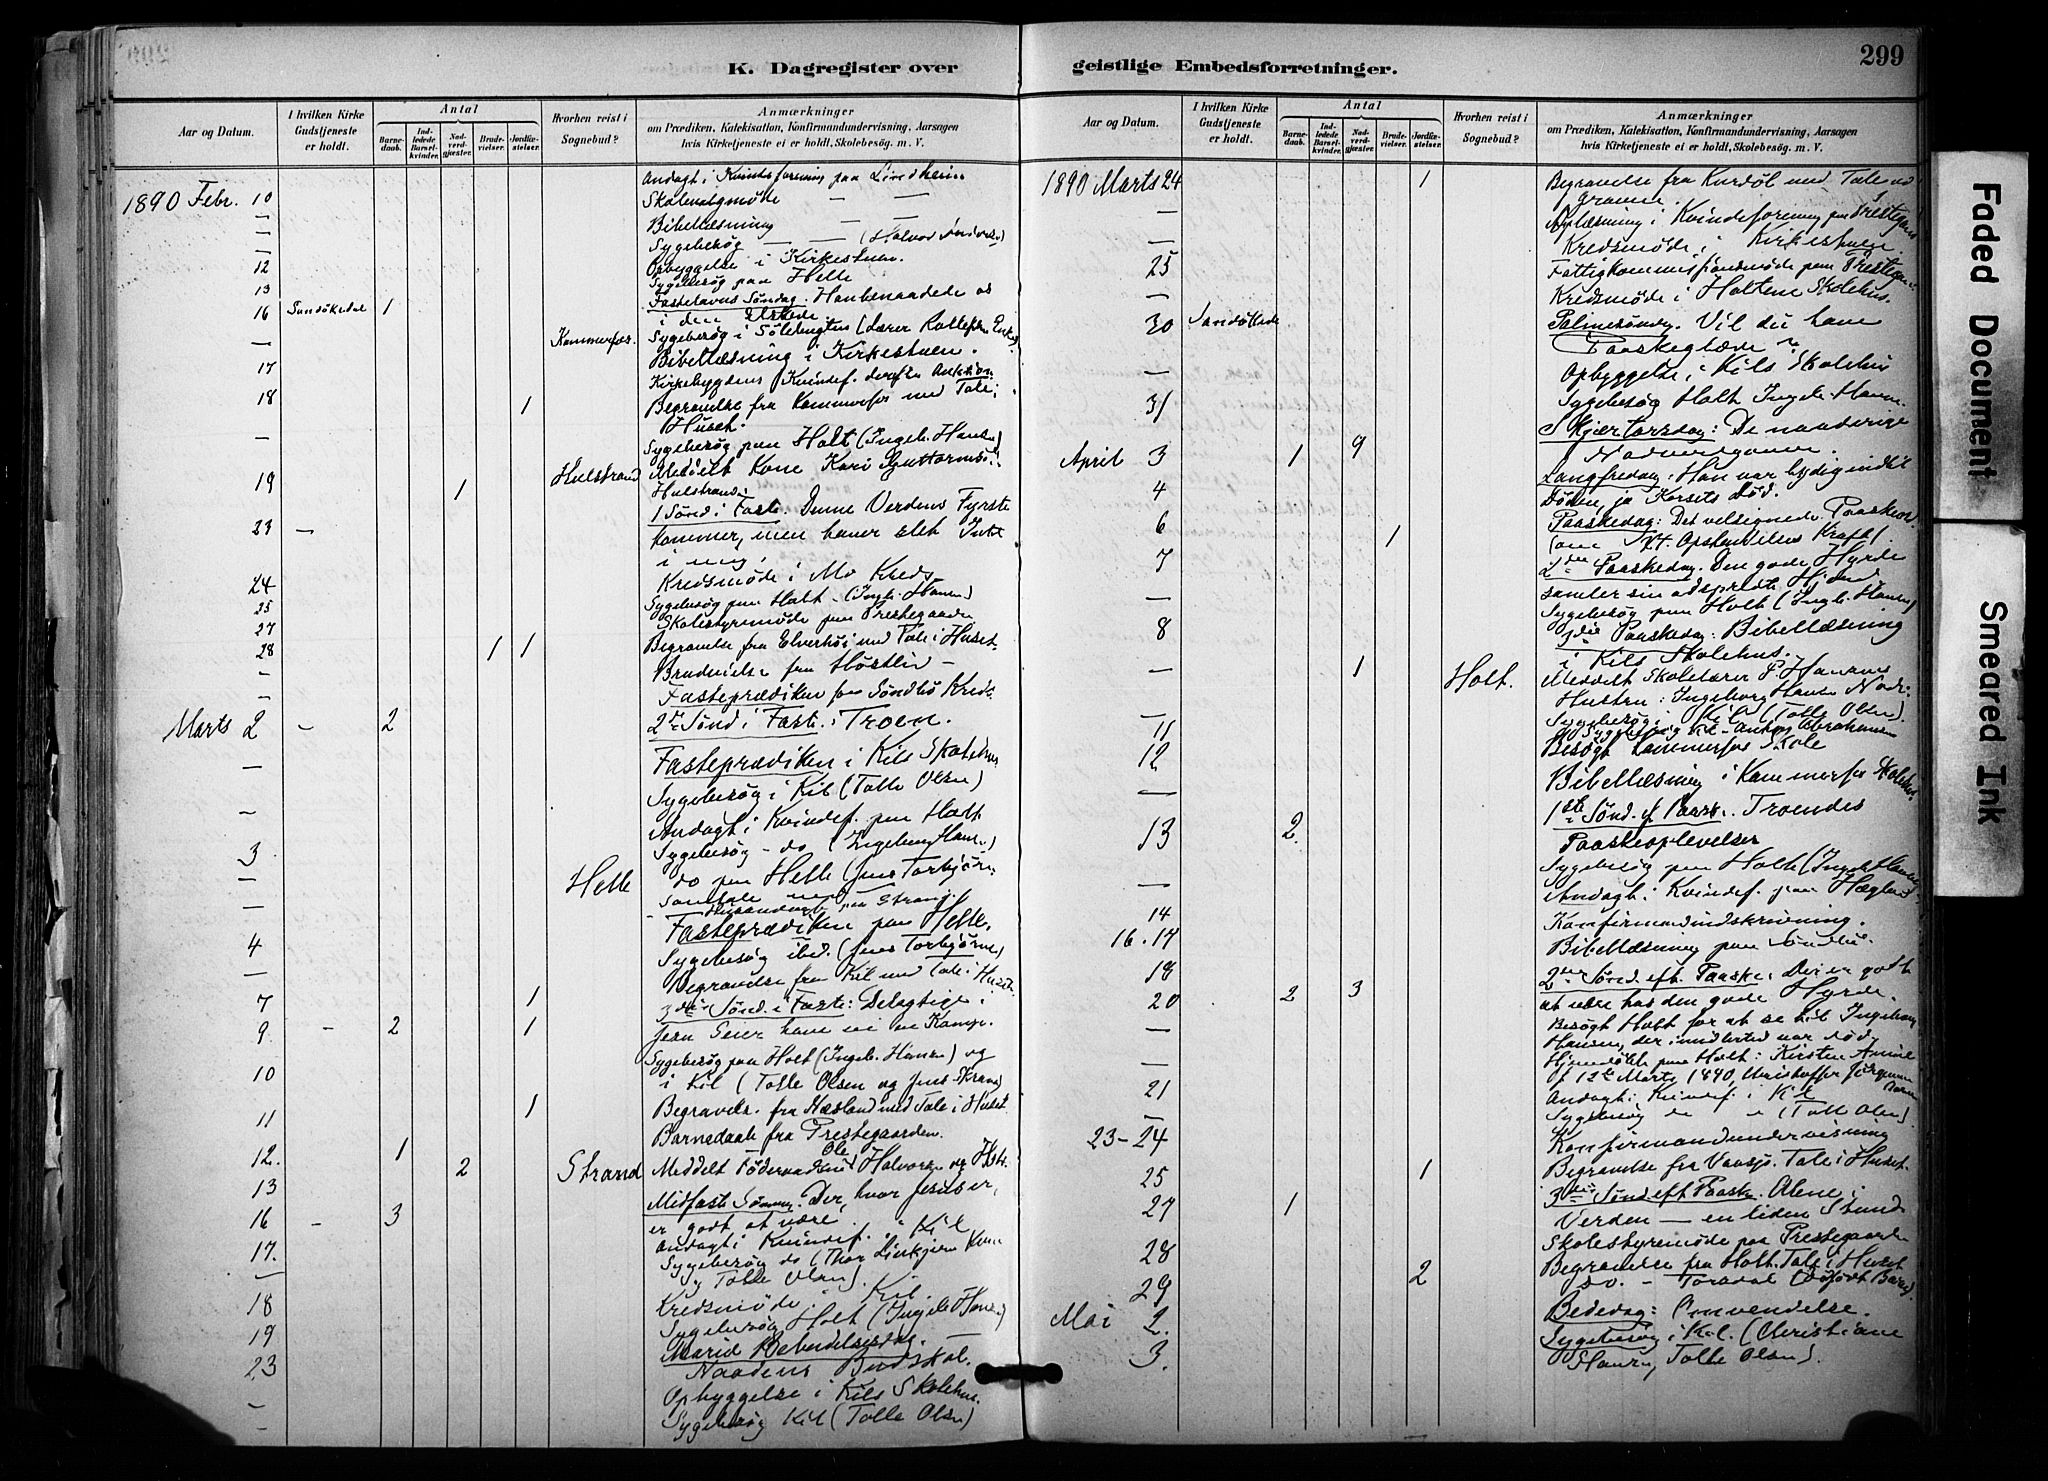 299
K. Dagregister over geistlige Embedsforretninger.
Aar og Datum.
I hvilken Kirke Gudstjeneste er holdt.
Antal
Barnedaab.
Indledede Barselkvinder.
Nadverdgjæster.
Brudevielser.
Jordfæstelser.
Hvorhen reist i Sognebud?
Anmærkninger
om Prædiken, Katekisation, Konfirmandundervisning, Aarsagen
hvis Kirketjeneste ei er holdt, Skolebesøg. m. V.
1890 Febr. 10 Andagt i Kvindeforening paa Lindheim
— Skolevalgmöde — —
— Bibellæsning — —
— Sygebesøg — — (Halvor
12 Opbyggelse i Kirkestuen.
13 Sygebesøg paa Helle
16 Sandökedal 1 Fastelavns Søndag. Han benaadede os
i den Elskede.
— Kammerfos. Sygebesøg i (Lærer
17 Bibellæsning i Kirkestuen.
18 Kirkebygdens Kvindef. derefter Auktion
1 Begravelse fra Kammerfos med Tale i
Huset.
— Sygebesøg paa Holt (Ingeb. Hansen)
19 1 Hulstrand Meddelt Kone Kari Guttormsd.
Hulstrand
23 — 1 Sönd i Faste. Denne Verdens Fyrste
kommer, men haver slet Intet
i mig.
24 Kredsmöde i Mo Kreds
25 Sygebesøg paa Holt (Ingb. Hansen)
27 Skolestyremöde paa Prestegaarden
28 1 1 Begravelse fra Elverhöi med Tale i Huset
— Brudevielse fra —
— Fasteprædiken paa Söndbö Kreds
Marts 2 — 2 2den Sönd i Faste. Troen.
— Fasteprædiken i Kils Skolehus
— Sygebesøg i Kil (Tolle Olsen)
3 Andagt i Kvindef. paa Holt
— Sygebesøg do (Ingeborg Hansen)
— Helle do paa Helle (Jens Torbjörns.
Samtale
4 Fasteprædiken paa Helle.
— Sygebesøg ibid. (Jens Torbjörns.)
7 1 Begravelse fra Kil med Tale i Huset
9 — 2 1 3die Sönd. i Faste: Delagtige i
Jesu Seier have vi en Kamp.
10 Sygebesøg paa Holt (Ingeb. Hansen) og
i Kil (Tolle Olsen og Jens
11 1 Begravels. fra Hæsland med Tale i Huset
12. 1 Barnedaab fra Prestegaarden.
13 2 Strand Meddelt Födernadsmd Ole Halvorsen og Hstr.
16 — 3 Midfaste Sönndag. Der, hvor Jesus er,
er godt at være
17. Andagt i Kvindef. i Kil
— Sygebesøg do (Thor
og Tolle Olsen).
18 Kredsmöde i Kil.
19 Sygebesøg Holt (Ingeb. Hansen)
23 Mariæ Bebudelsesdag. —
Naadens Budskab.
— Opbyggelse i Kils Skolehus.
— Sygebesøg Kil (Tolle Olsen)
1890 Marts 24 1 Begravelse fra Kurdöl med Tale ved
graven.
— Oplæsning i Kvindeforening paa Prestegaard
— Kredsmöde i Kirkestuen
25 Fattigkommissionsmöde paa Prestegaard
— Kredsmöde i Holtene Skolehus.
30 Sandökedal Palmesöndag. Vil du have
Paaskeglæde?
— Opbyggelse i Kils Skolehus
31 Sygebesøg Holt Ingeb. Hansen
April 3 1 9 Skjærtorsdag: De naaderige
Nadvergaver.
4 Langfredag: Han var lydig indtil
Döden, ja Korsets Död.
6 1 Paaskedag: Det velsignede Paaskeord
(om Kr. Opstandelses Kraft).
7 2den Paaskedag. Den gode Hyrde
samler sin adspredte Hjord
— Sygebesøg paa Holt (Ingb. Hansen)
8 3die Paaskedag: Bibellæsning
i Kils Skolehus.
— 1 Holt. Meddelt Skolelærer P. Hansens
Hustru: Ingeborg Hansen Nadv.
11 Sygebesøg i Kil (Tolle Olsen).
Sygebesøg Kil Abrahamsen
12 Besøgt Kammerfos Skole
— Bibellæsning i Kammerfos Skolehus.
13 2. 1ste Sönd. ef. Paask. Troendes
Paaskeoplevelser
— Sygebesøg paa Holt (Ingeb. Hansen
14 Andagt i Kvindef. paa
16.17 Konfirmandindskrivning.
18 Bibellæsning paa
20 2 3 2den Sönd. eft. Paaske. Der er godt
at være hos den gode Hyrde.
— Besøgt Holt for at se til Ingeborg
Hansen, der imidlertid var död.
— Hjemdöbt paa Holt: Kirsten
f 12te Marts 1890,
21 Andagt i Kvindef. i Kil
— Sygebesøg do (Tolle Olsen).
23-24 Konfirmandundervisning
25 1 Begravelse fra Vaasjö. Tale i Huset.
27 1 3die Sönd eft Paaske. Alene i
Verden — en liden Stund
28 Skolestyremöde paa Prestegaarden
29 2 Begravelse fra Holt. Tale i Huset
Do. — Toradal (Dödfödt Barn).
Mai 2. Bededag: Omvendelse.
3. Sygebesøg i Kil. (Christiane
Hansen, Tolle Olsen).
Faded Document
Smeared Ink